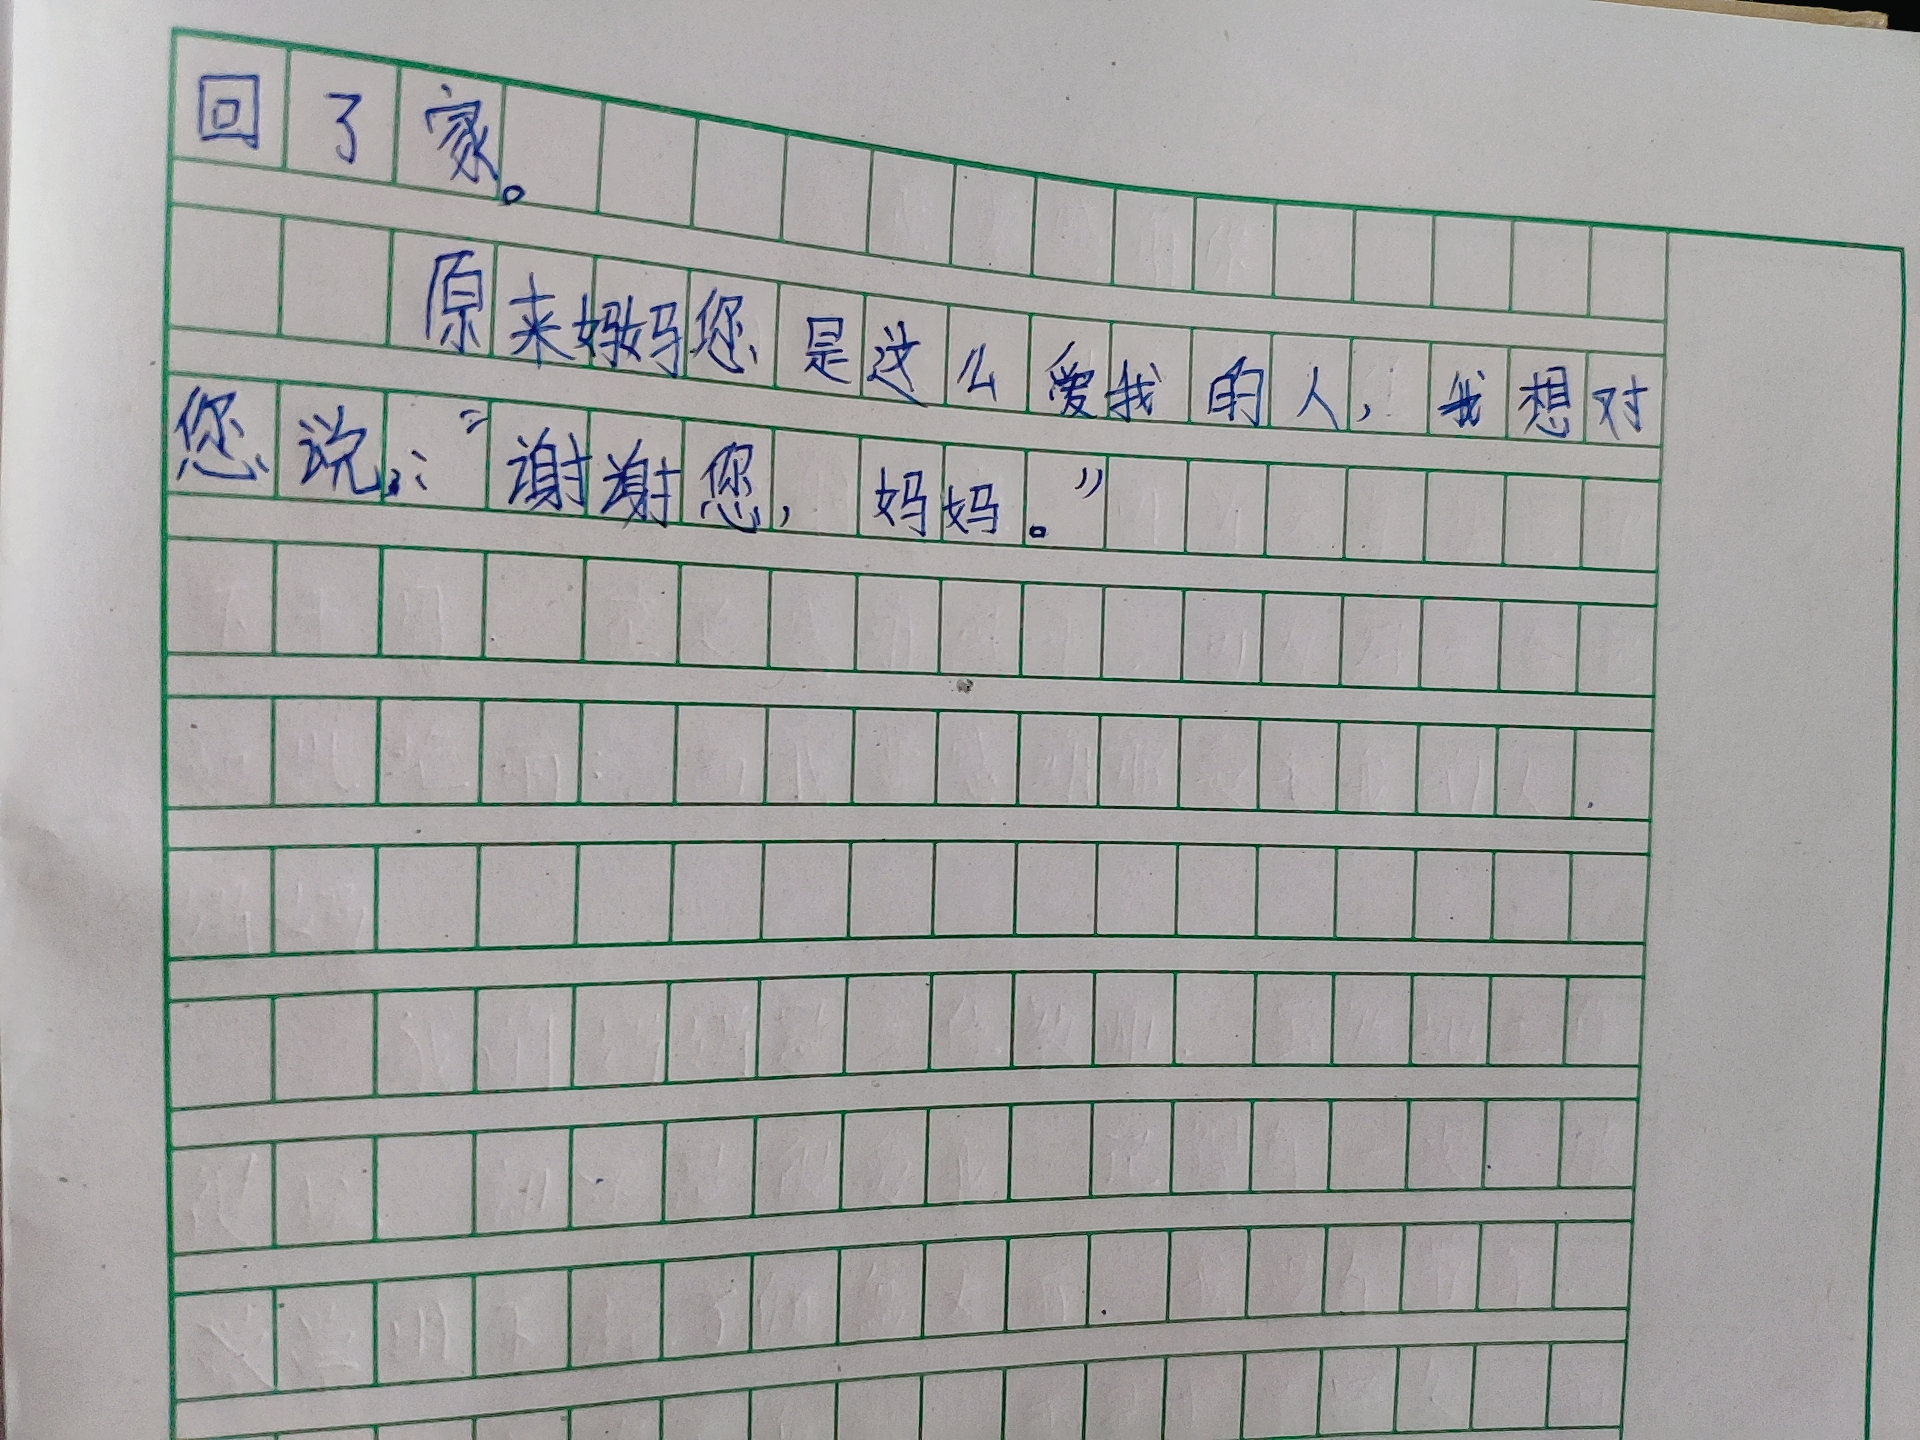 回了家。
原来妈妈您是这么爱我的人，我想对
您说：“谢谢您，妈妈。”